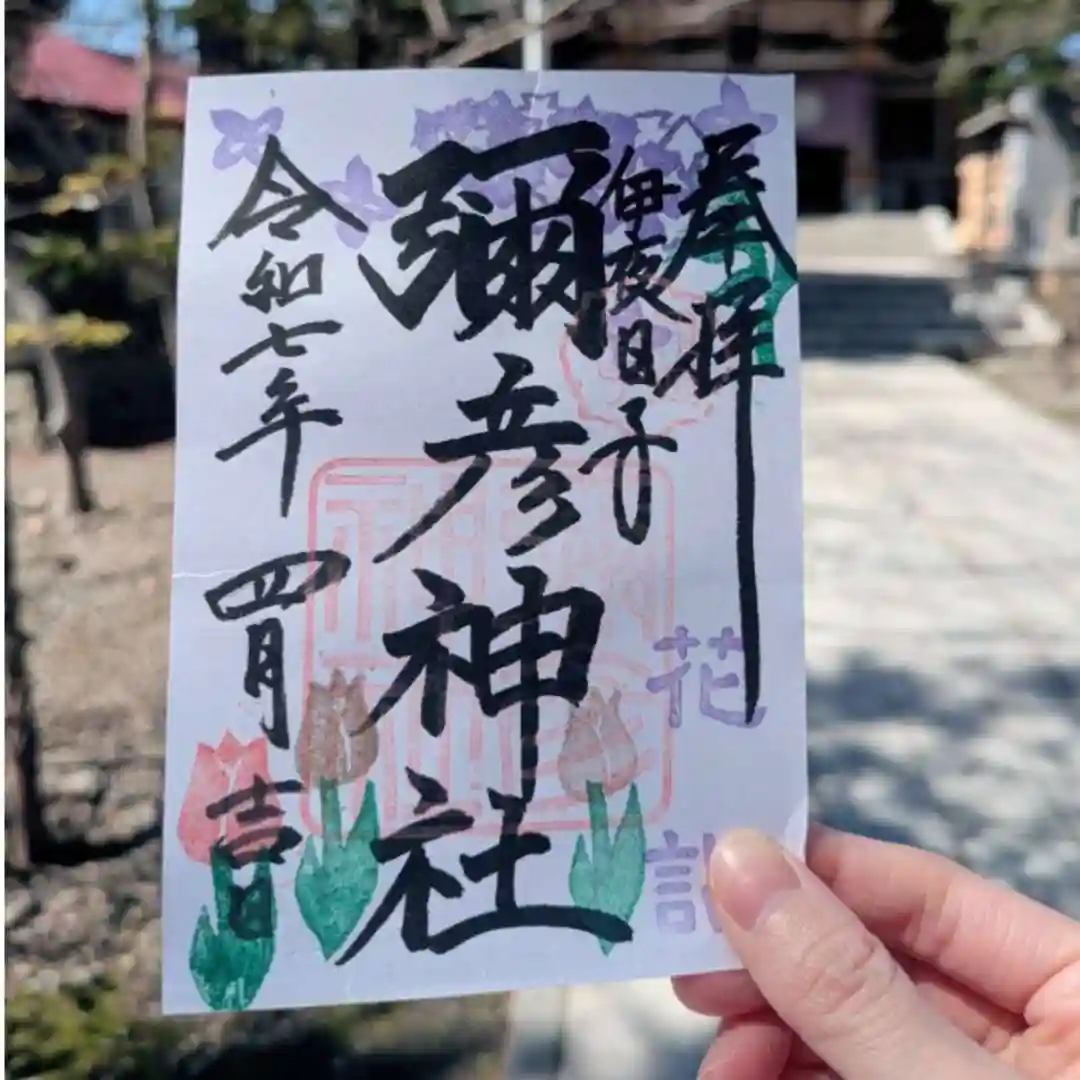 奉拝
伊夜日子
彌彦神社
令和七年 四月 吉日
花